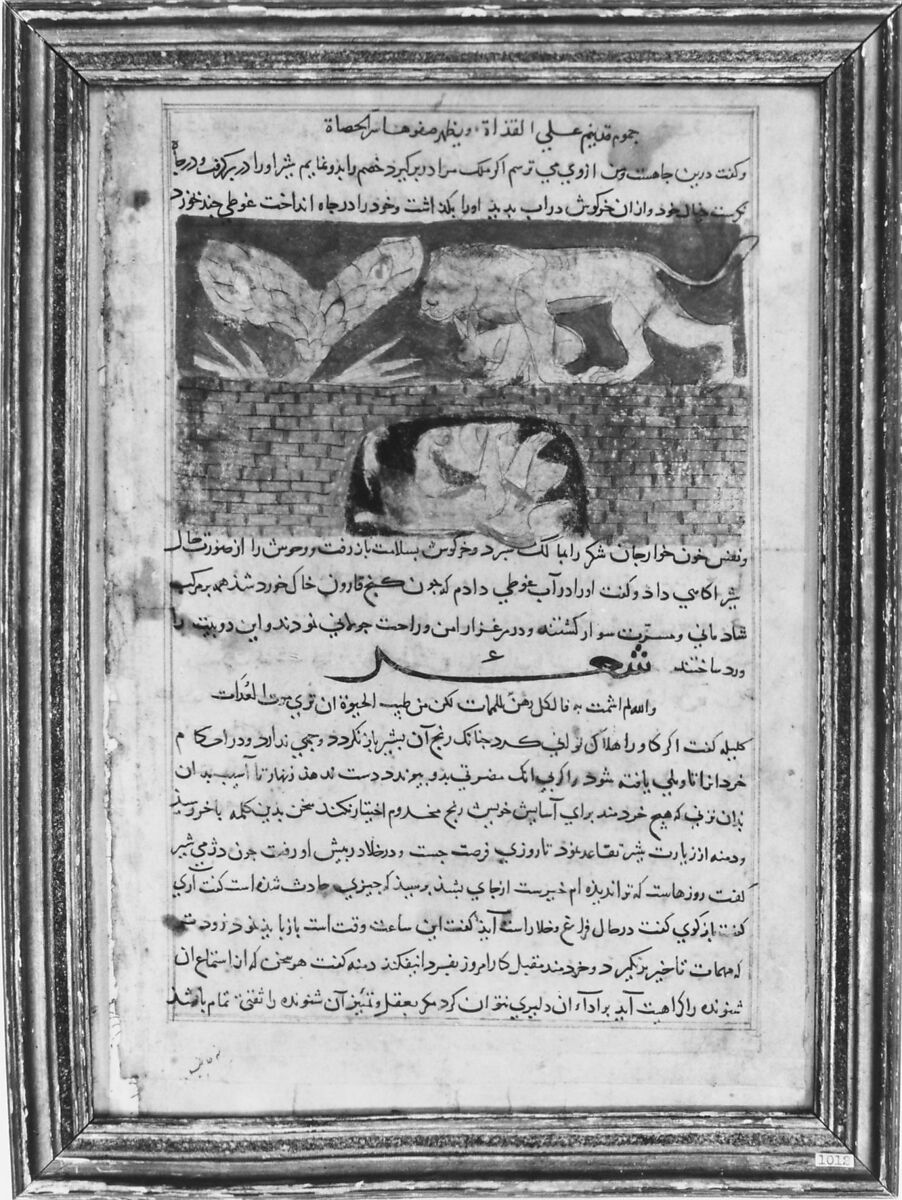 جموم قد ينم علي القذاة ويظهر صفوها سر الحصاة
وكفت درين جاهست ومن ازوي مي ترسم اكر ملك مرا در بر كيرد خصم را بدو نمايم شير او را در بر كرفت و در جاه
نكريست خيال خود وازان خركوش دراب بديد اورا بكذاشت وخود را در جاه انداخت غوطي جند خورد
ونفس خون خوار جان را بمالك سبرد وخركوش بسلامت باز رفت ووحوش را از صورت حال
شير اكاهي داد وكفت اورا در آب غوطي دادم كه جون كنج قارون خاك خورد شد همه بر مركب
شادماني ومسرت سوار كشتند ودر مرغزار امن وراحت جولاني نمودند واين دو بيت را
ورد ساختند شعر
والله لم اشمت به فالكل رهن للممات لكن من طيب الحيوة ان تري موت العداة
كليله كفت اكر كاو را هلاك تواني كرد جنانك رنج آن بشير باز نكردد وجهي دارد ودر احكام
خرد انرا تاويلي يافته شود واكر بي انك مضرتي بدو بيوندد دست ندهد زنهار تا آسيب بدان
بدان نزني كه هيج خردمند براي آسايش خويش رنج مخدوم اختيار نكند سخن بدين كلمه باخر رسيذ
ودمنه از زيارت شير تقاعد نمود تا روزي فرصت جست ودر خلا در بيش او رفت جون دژمي شير
كفت روزهاست كه ترا نديذه ام خير ست از جاي بشد برسيذ كه جيزي حادث شده است كفت آري
كفت باز كوي كفت در حال فراغ وخلا راست آيد كفت اين ساعت وقت است باز بايد نمود زودتر
كه مهمات تاخير بر نكيرد وخردمند مقبل كار امروز بفردا نيفكند دمنه كفت هر سخن كه از استماع ان
شنونده را كراهيت آيد بر اداء آن دليري نتوان كرد مكر بعقل وتمييز آن شنونده را ثقتي تمام باشد
1012